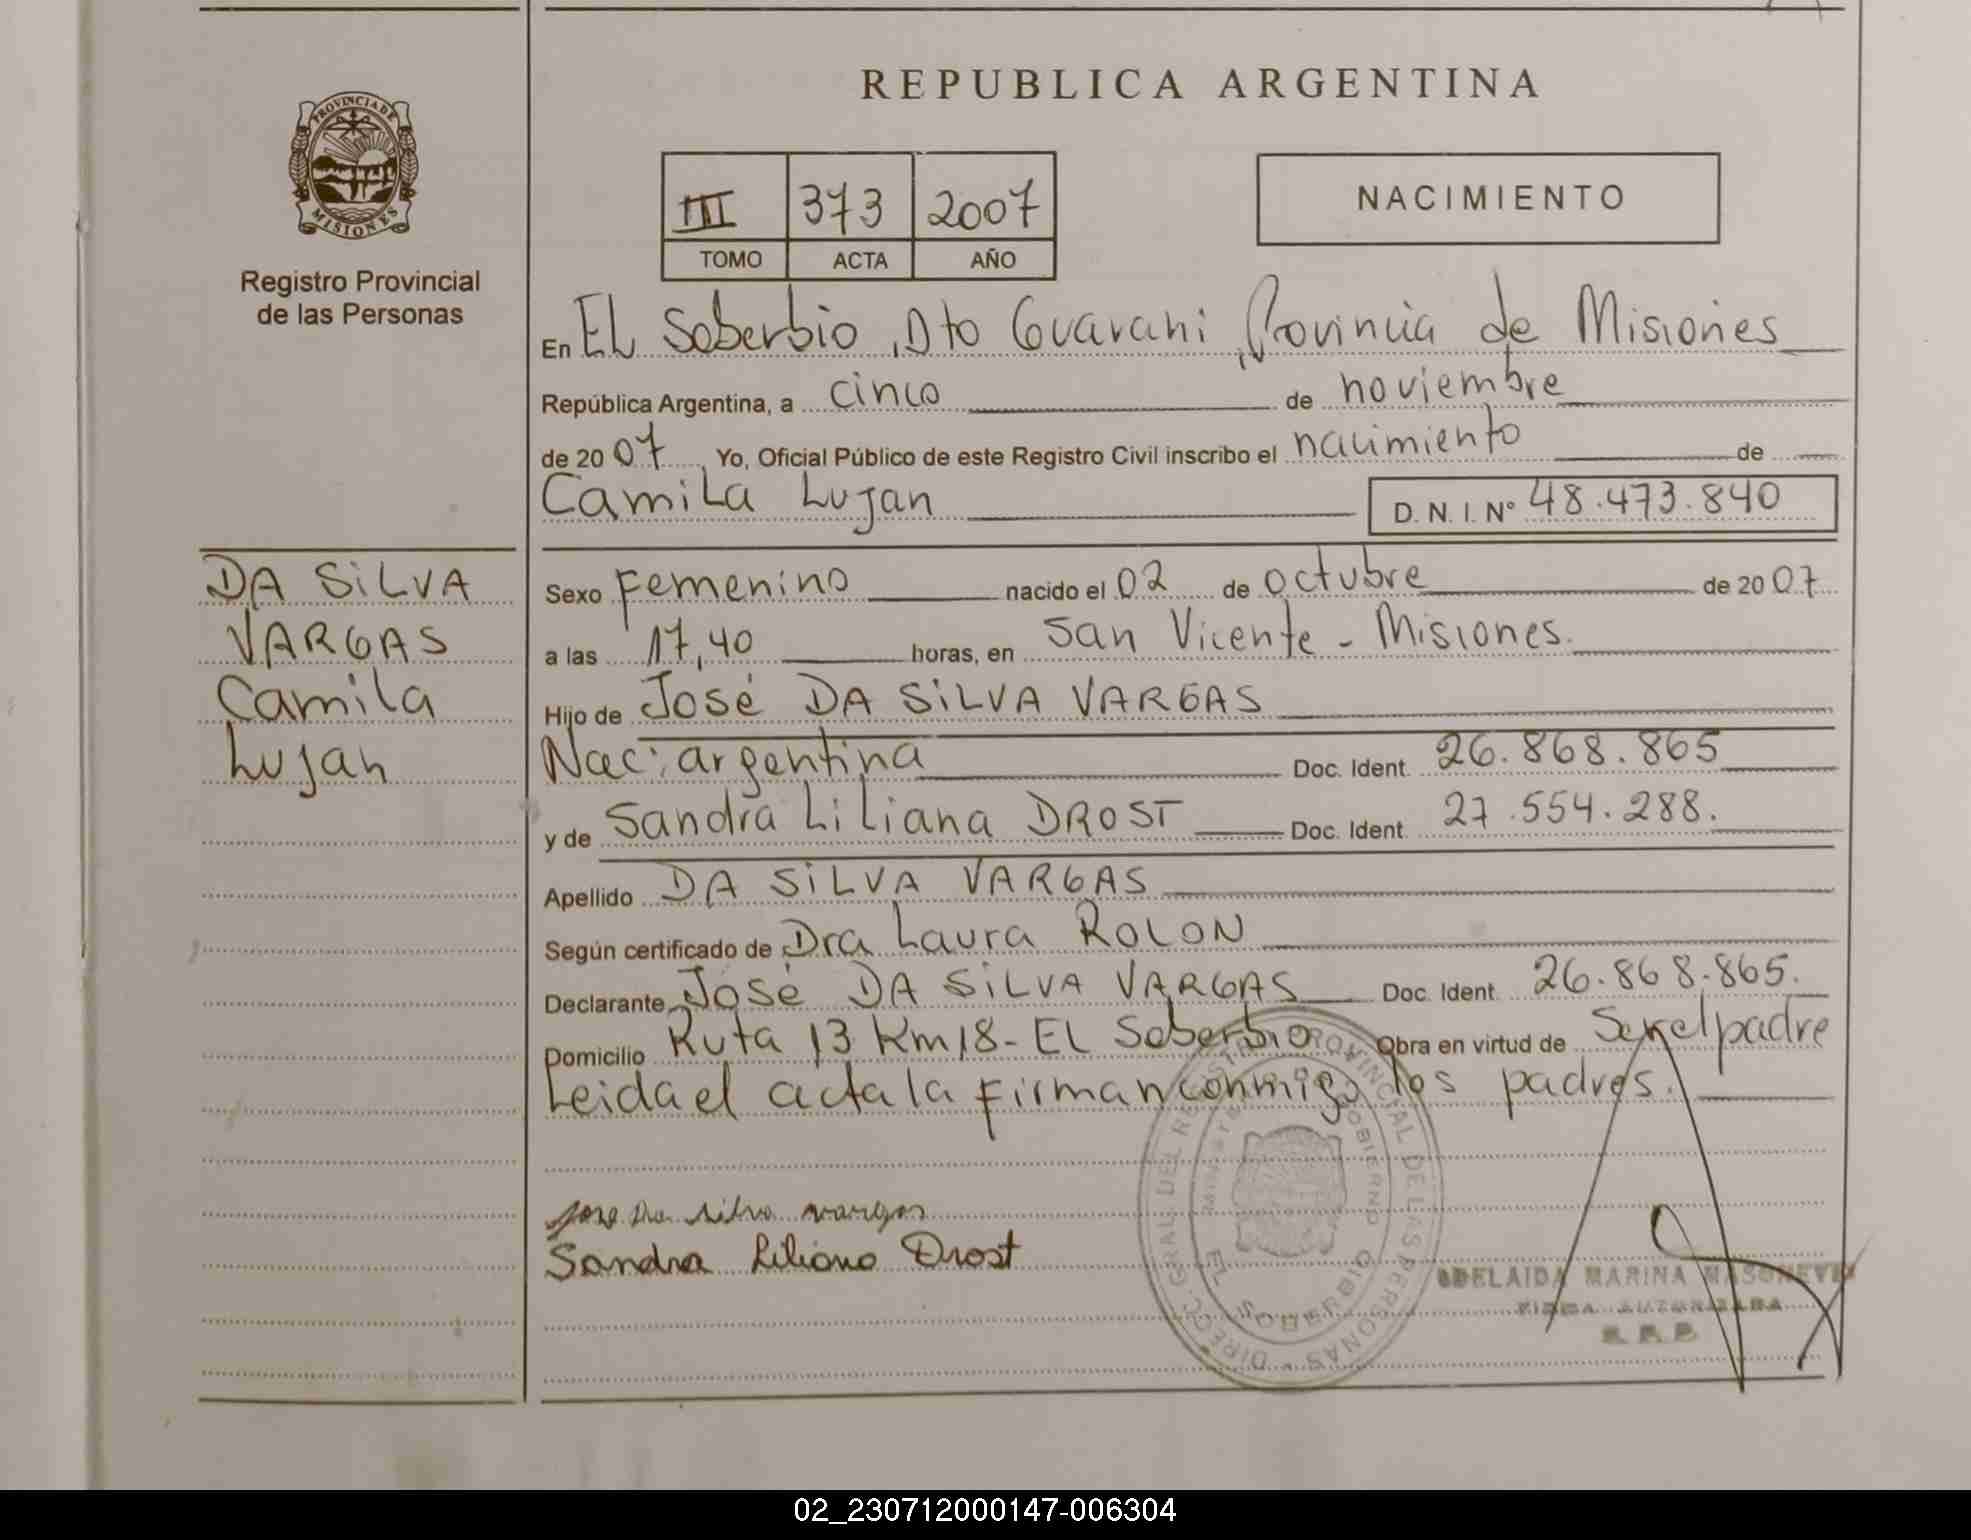 REPUBLICA ARGENTINA
PROVINCIA DE
MISIONES
Registro Provincial
de las Personas
III 373 2007
TOMO ACTA AÑO
NACIMIENTO
En EL Soberbio, Dto Guarani, Provincia de Misiones
República Argentina, a cinco de noviembre
de 2007, Yo, Oficial Público de este Registro Civil inscribo el nacimiento de
Camila Lujan D. N. I. Nº 48.473.840
DA SILVA
VARGAS
Camila
Lujan
Sexo Femenino nacido el 02 de octubre de 2007
a las 17,40 horas, en San Vicente - Misiones.
Hijo de José DA SILVA VARGAS
Nac: argentina Doc. Ident. 26.868.865
y de Sandra Liliana DROST Doc. Ident. 27.554.288.
Apellido DA SILVA VARGAS
Según certificado de Dra Laura ROLON
Declarante José DA SILVA VARGAS Doc. Ident. 26.868.865.
Domicilio Ruta 13 Km 18 - EL Soberbio Obra en virtud de Ser el padre
Leida el acta la firman conmigo los padres.
Jose Da silva vargas
Sandra Liliana Drost
DIREC. GRAL DEL REGISTRO PROVINCIAL DE LAS PERSONAS
GOBIERNO
EL SOBERBIO
ADELAIDA MARINA
FIRMA AUTORIZADA
02_230712000147-006304